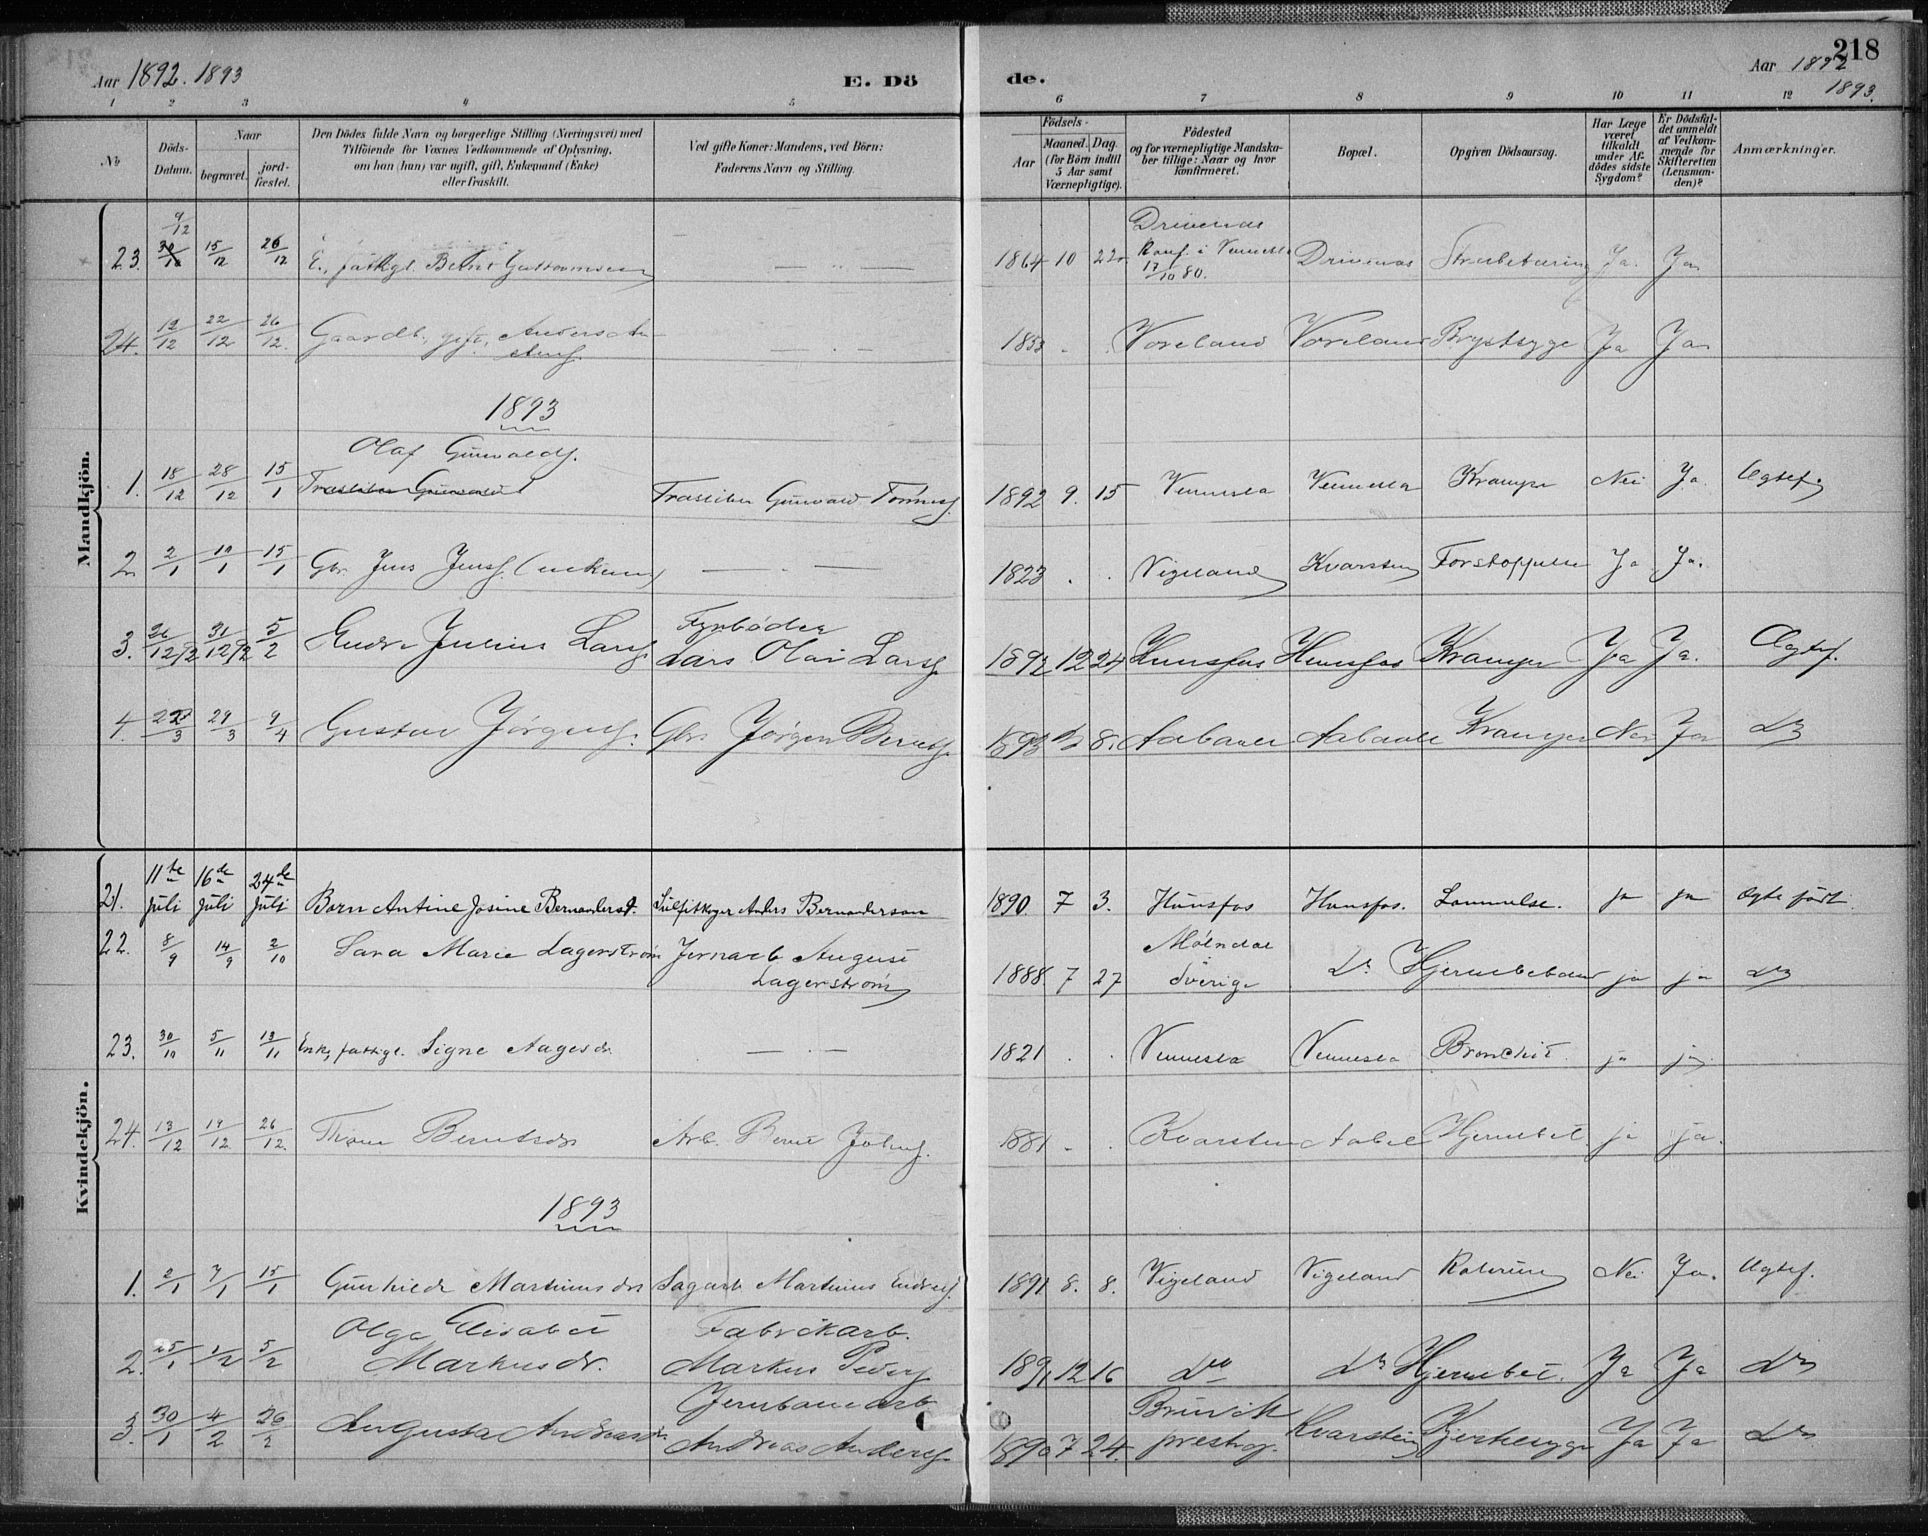 218
Aar 1892. 1893 E. Dö de. Aar 1892 1893.
1 2 3 4 5 6 7 8 9 10 11 12
No
Döds-Datum.
Naar
begravet.
jordfæstet.
Den Dödes fulde Navn og borgerlige Stilling (Næringsvei) med
Tilföiende for Voxnes Vedkommende af Oplysning,
om han (hun) var ugift, gift, Enkemand (Enke)
eller fraskilt.
Ved gifte Koner: Mandens, ved Börn:
Faderens Navn og Stilling.
Födsels-
Aar
Maaned. Dag.
(for Börn indtil
5 Aar samt
Værnepligtige).
Födested
og for værnepligtige Mandskaber tillige: Naar og hvor
konfirmeret.
Bopæl.
Opgiven Dödsaarsag.
Har Læge
været
tilkaldt
under Afdödes sidste
Sygdom?
Er Dödsfaldet anmeldt
af Vedkommende for
Skifteretten
(Lensmanden)?
Anmærkninger.
Mandkjön.
23. 9/12 15/12 26/12 E., fattigl. Bernt Guttormsen 1864 10 22 Drivenes Konf. i Vennesla 17/10 80. Drivenes Strubetæring Ja. Ja
24. 19/12 22/12 26/12 Gaardb., gift, 1833 Voreland Voreland Brystsyge Ja Ja
1893
Olaf Gunvalds.
1. 18/12 28/12 15/1 Gunvald Tønnes. 1892 9. 15 Vennesla Vennesla Krampe Nei Ja. Ægtef.
2 2/1 10/1 15/1 Gbr. Jens Jens. (enkem) 1823 Vigeland Kvarsten Forstoppelse Ja Ja.
3. 26/12 92 31/12 92 5/2 Endre Julius Lars. Fyrbøder Lars Olai Lars. 1892 12 24 Hunsfos Hunsfos Krampe Ja Ja. Ægtef.
4. 22/3 29/3 9/4 Gustav Jørgens. Gbr. Jørgen Bernts. 1893 8. Aabaale Aabaale Krampe Nei Ja do
Kvindekjön.
21. 11te Juli 16de Juli 24de Juli Barn Antine Josine Bernandersd. Sulfitkoger Anders Bernanderson 1890. 7 3. Hunsfos Hunsfos. Lammelse. ja ja Ægte født.
22. 8/9 14/9 2/10 Sara Marie Lagerstrøm Jernarb August Lagerstrøm 1888 7 27 Mølndal Sverige do ja ja do
23. 30/10 5/11 13/11 Enke, fattigl. Signe Aagesdr 1821 Vennesla Vennesla Bronchit. ja ja
24. 13/12 19/12 26/12 Thom Berntsdr Arb. Bernt Johns. 1881 Kvarsten Hjernebet. ja ja.
1893
1. 2/1 7/1 15/1 Gunhilde Martinusdr Sagarb Martinus Endres. 1891 8. 8. Vigeland Vigeland Nei Ja. Ægtef.
2. 25/1 1/2 5/2 Olga Elisabet Markusdr. Fabrikarb. Markus Peders. 1891 12 16 do do Hjernebet. Ja Ja do
3. 30/1 4/2 26/2 Augusta Andreasdr. Jernbanearb. Andreas Anders. 1890 7 24. Bruvik prestegj. Kvarstein Kjertelsyge Ja Ja do